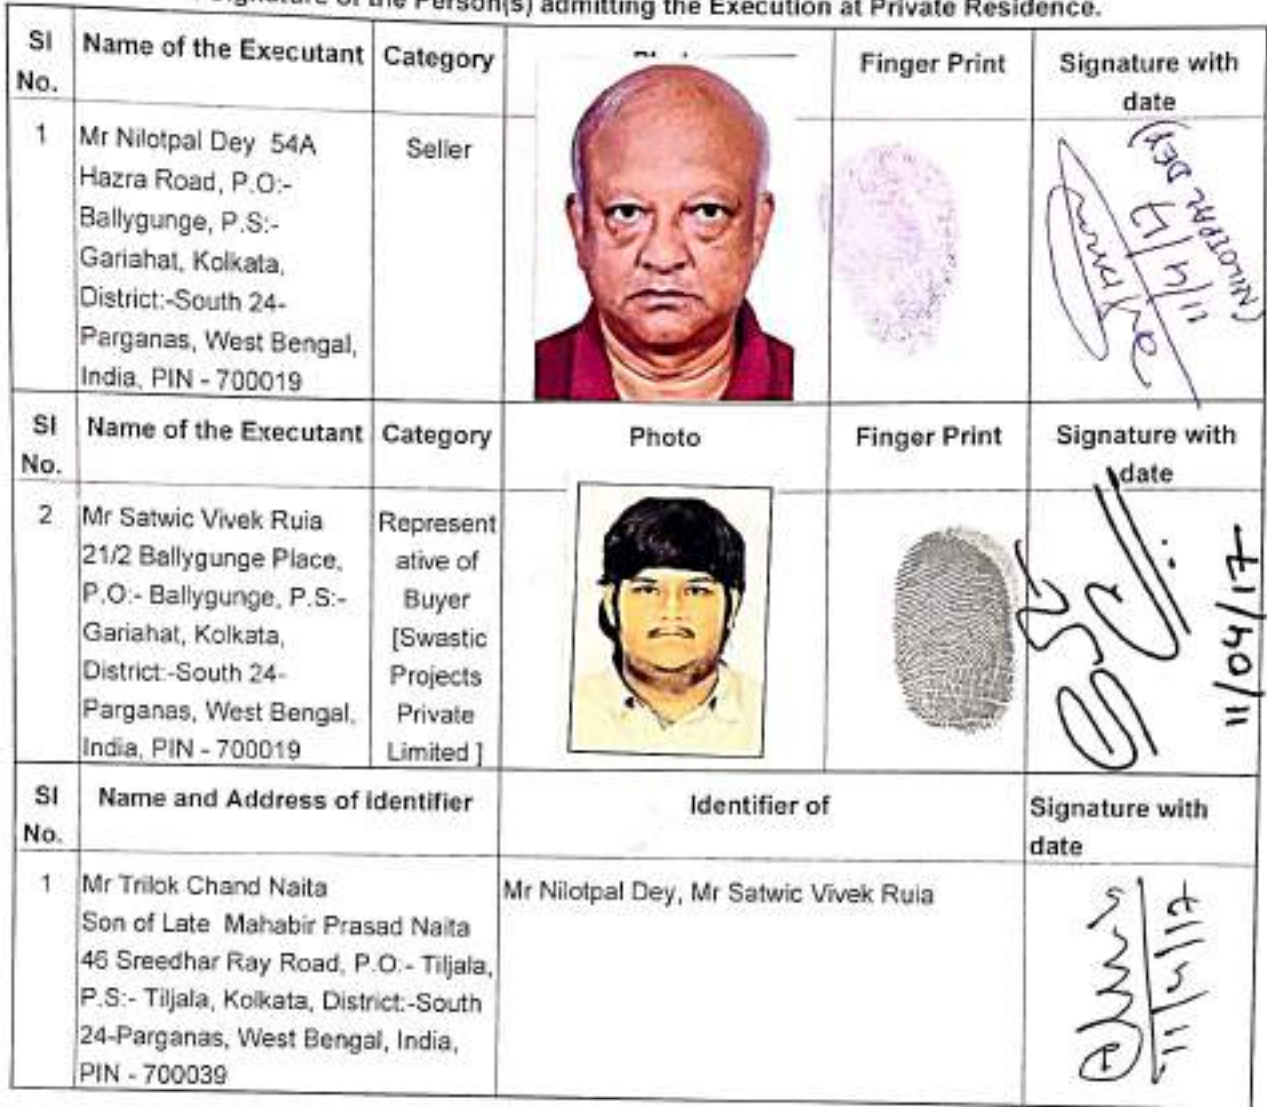 Signature of the Person(s) admitting the Execution at Private Residence.
Sl No. Name of the Executant Category Finger Print Signature with date
1 Mr Nilotpal Dey 54A
Hazra Road, P.O:-
Ballygunge, P.S:-
Gariahat, Kolkata,
District:-South 24-
Parganas, West Bengal,
India, PIN - 700019
Seller
11/4/17
(NILOTPAL DEY)
Sl No. Name of the Executant Category Photo Finger Print Signature with date
2 Mr Satwic Vivek Ruia
21/2 Ballygunge Place,
P.O:- Ballygunge, P.S:-
Gariahat, Kolkata,
District:-South 24-
Parganas, West Bengal,
India, PIN - 700019
Represent
ative of
Buyer
[Swastic
Projects
Private
Limited ]
11/04/17
Sl No. Name and Address of identifier Identifier of Signature with date
1 Mr Trilok Chand Naita
Son of Late Mahabir Prasad Naita
46 Sreedhar Ray Road, P.O:- Tiljala,
P.S:- Tiljala, Kolkata, District:-South
24-Parganas, West Bengal, India,
PIN - 700039
Mr Nilotpal Dey, Mr Satwic Vivek Ruia
11/4/17